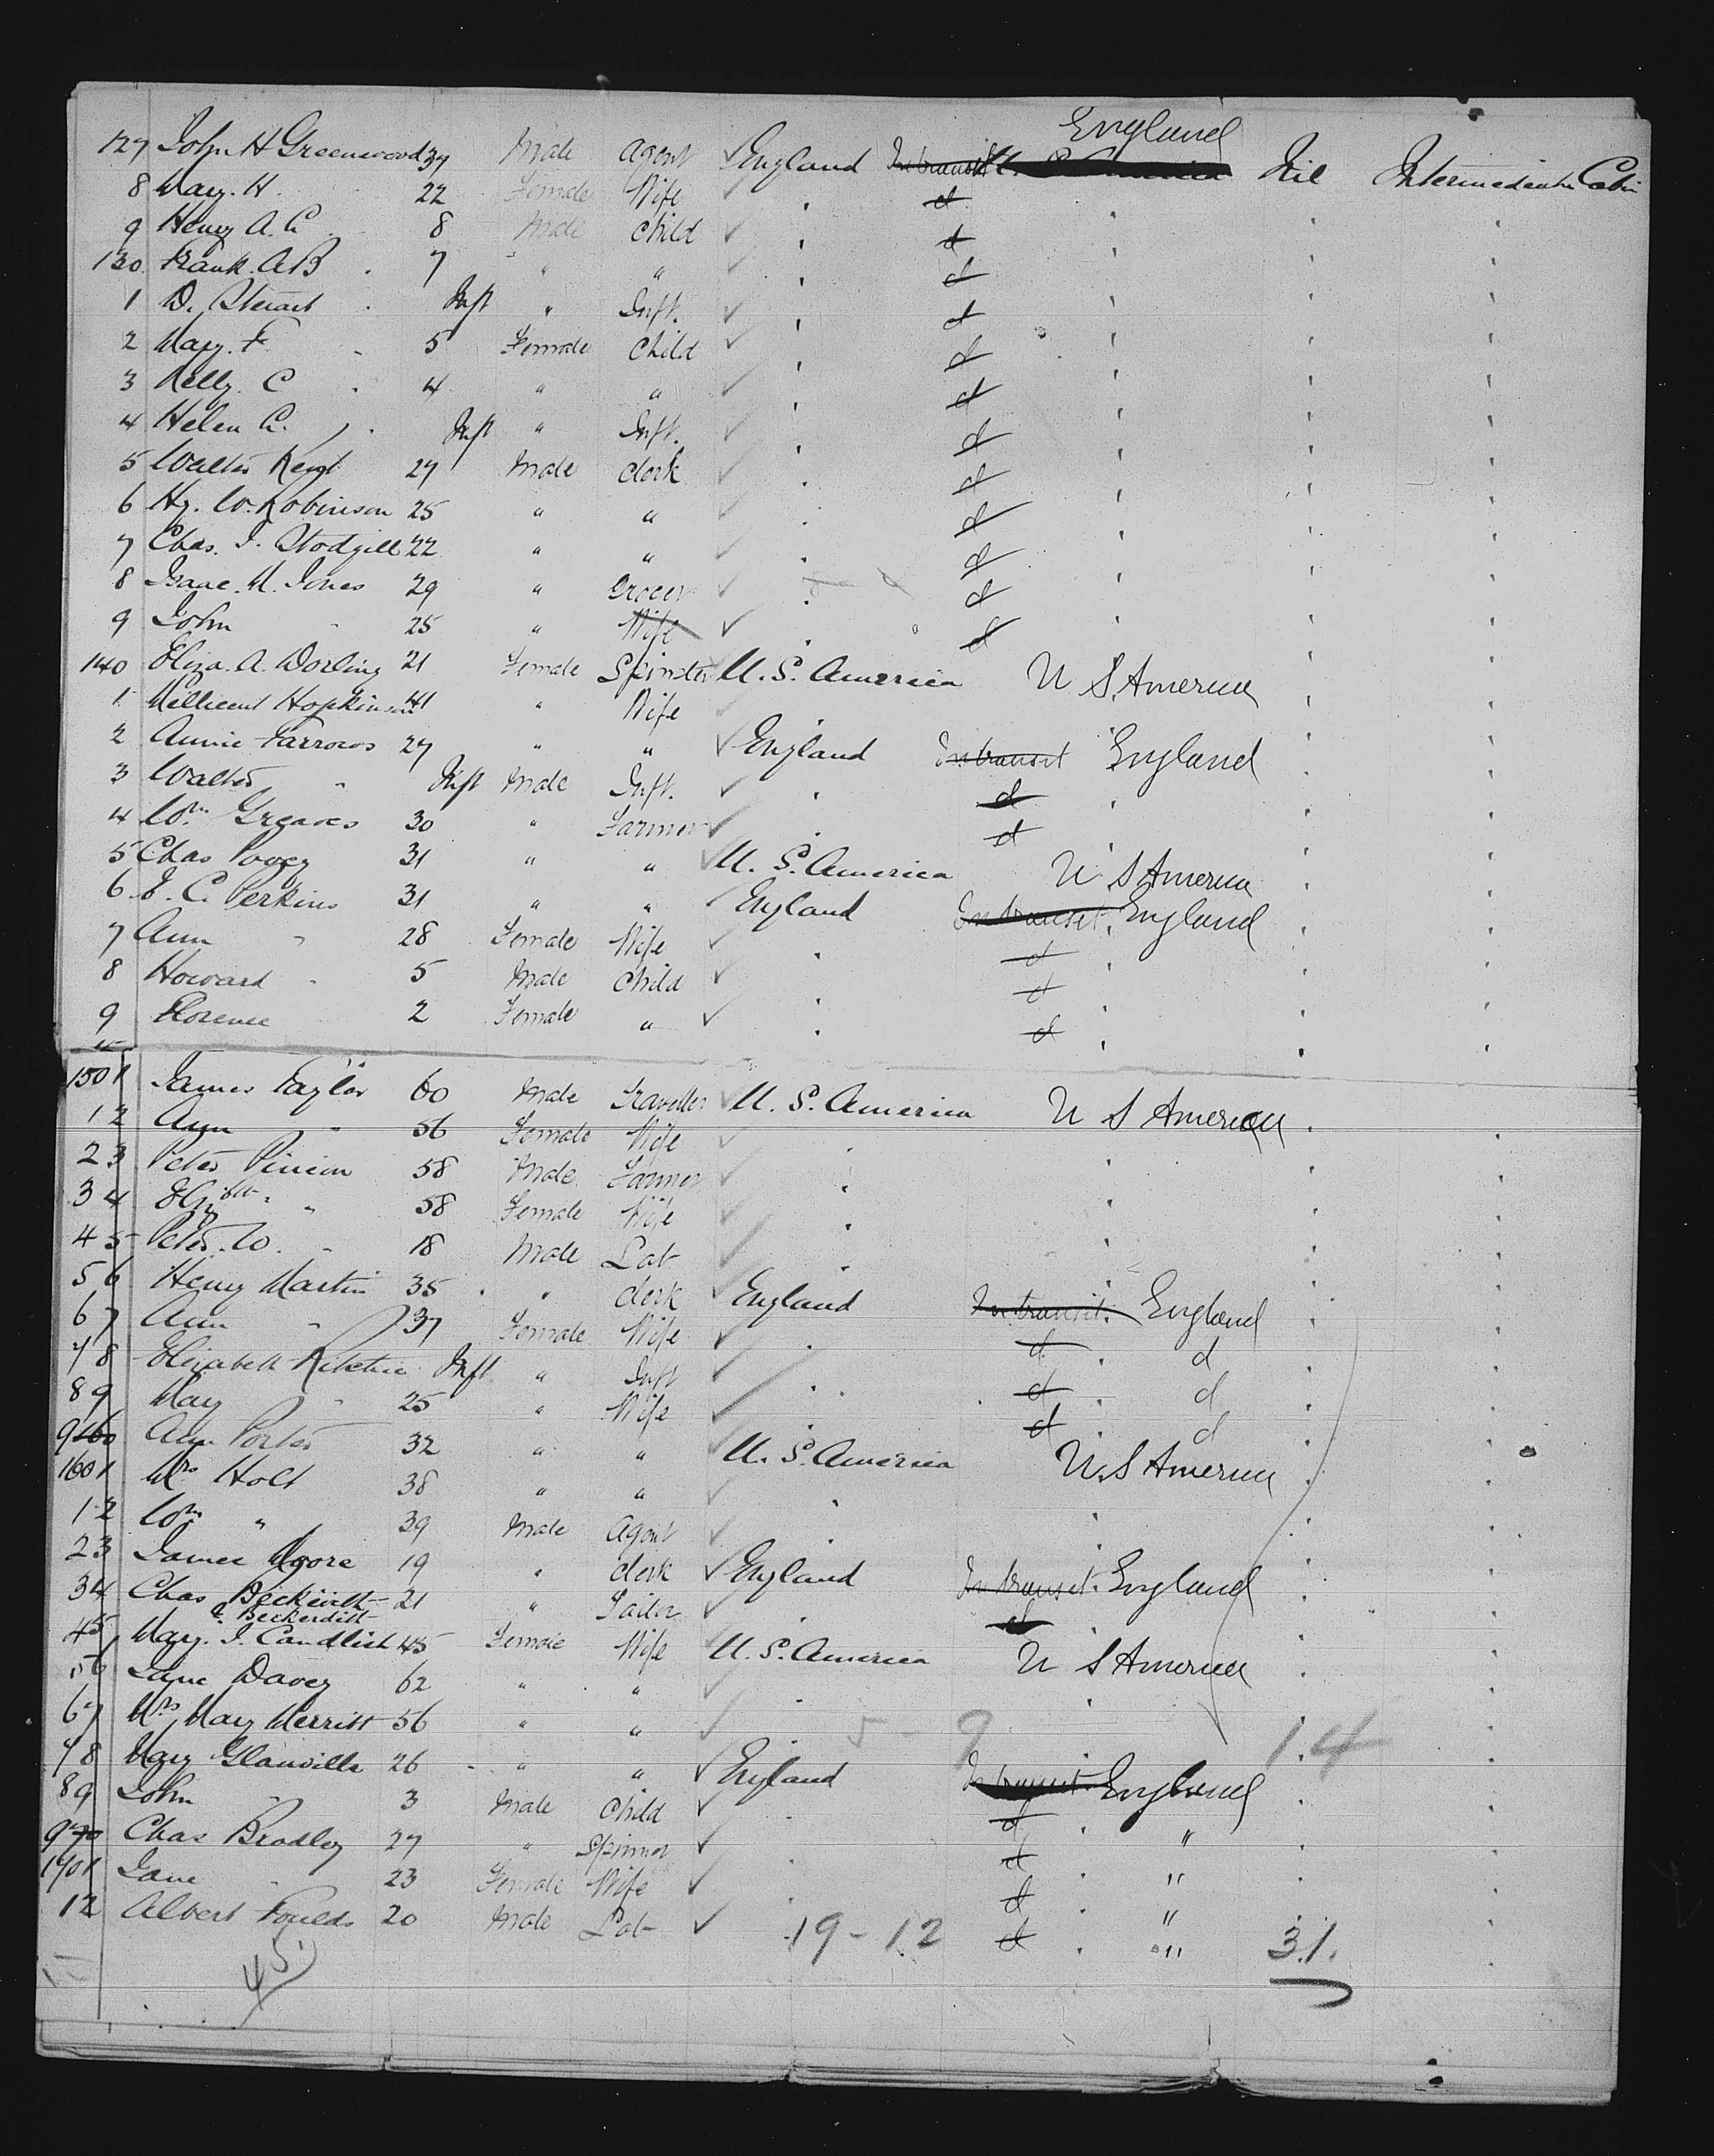 England
127 John H Greenwood 37 Male Agent ✓ England In transit Nil Intermediate Cabin
8 Mary. H. 22 Female Wife ✓ " d
9 Henry A. C. 8 Male Child ✓ " d
130 Frank. A B 7 " " ✓ " d
1 D. Stewart Inft " Inft. ✓ " d
2 Mary. F. 5 Female Child ✓ " d
3 Nelly. C 4 " " ✓ " d
4 Helen C. Inft " Inft. ✓ " d
5 Walter 27 Male Clerk ✓ " d
6 Hy. W. Robinson 25 " " ✓ " d
7 Chas. J. Stodgill 22 " " ✓ " d
8 Isaac. M. Jones 29 " Grocer ✓ " d
9 John " 25 " Wife ✓ " d
140 Eliza. A. Dorling 21 Female Spinster U. S. America U S America
1 Millicent Hopkinson 41 " Wife ✓ "
2 Annie Farrows 27 " " ✓ England In transit England
3 Walter " Inft Male Inft. ✓ " d
4 Wm Greaves 30 " Farmer ✓ " d
5 Chas Povey 31 " " ✓ U. S. America U S America
6 J. C. Perkins 31 " " ✓ England In transit England
7 Ann " 28 Female Wife ✓ " d
8 Howard " 5 Male Child ✓ " d
9 Florence 2 Female " ✓ " d
150 1 James Taylor 60 Male Traveller ✓ U. S. America U S America
1 2 Ann " 56 Female Wife ✓ "
2 3 Peter Pinion 58 Male Farmer ✓ "
3 4 Elizbth " 58 Female Wife ✓ "
4 5 Peter. W. " 18 Male Lab ✓ "
5 6 Henry Martin 35 " Clerk ✓ England In transit England
6 7 Ann " 37 Female Wife ✓ " d d
7 8 Elizabeth Ritchie Inft " Inft ✓ " d d
8 9 Mary " 25 " Wife ✓ " d d
9 160 Ann Porter 32 " " ✓ U. S. America U. S America
160 1 Mrs Holt 38 " " ✓ "
1 2 Wm " 39 Male Agent ✓ "
2 3 James Moore 19 " Clerk ✓ England In transit England
3 4 Chas Beckwith 21 " Tailor ✓ " d
Beckerditt
4 5 Mary. J. Candlish 45 Female Wife ✓ U. S. America U S America
5 6 Jane Davey 62 " " ✓ "
6 7 Mrs Mary Merritt 56 " " ✓ " 5 - 9 14
7 8 Mary Glanville 26 " " ✓ England In transit England
8 9 John " 3 Male Child ✓ " d
9 70 Chas Bradley 27 " Spinner ✓ " d "
170 1 Jane " 23 Female Wife ✓ " d "
1 2 Albert Foulds 20 Male Lab ✓ 19 - 12 d " 31.
45